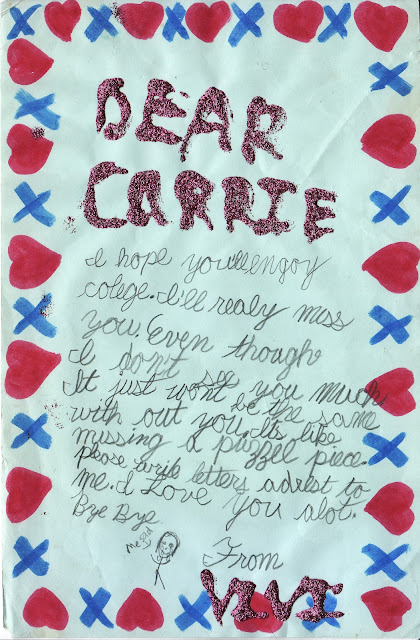 DEAR
CARRIE
I hope you'll engoy
colege. I'll realy miss
you. Even though
I don't see you much
It just wont be the same
with out you. Its like
missing a puzzel piece.
please write letters adrest to
me. I Love you alot.
Bye Bye
me
From
VIVI